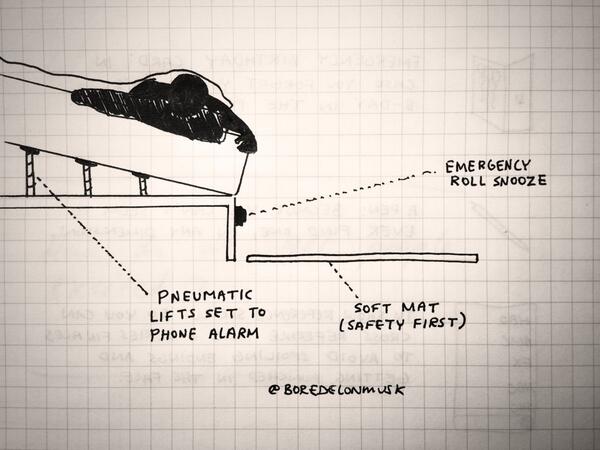 EMERGENCY
ROLL SNOOZE
PNEUMATIC
LIFTS SET TO
PHONE ALARM
SOFT MAT
(SAFETY FIRST)
@BOREDELONMUSK